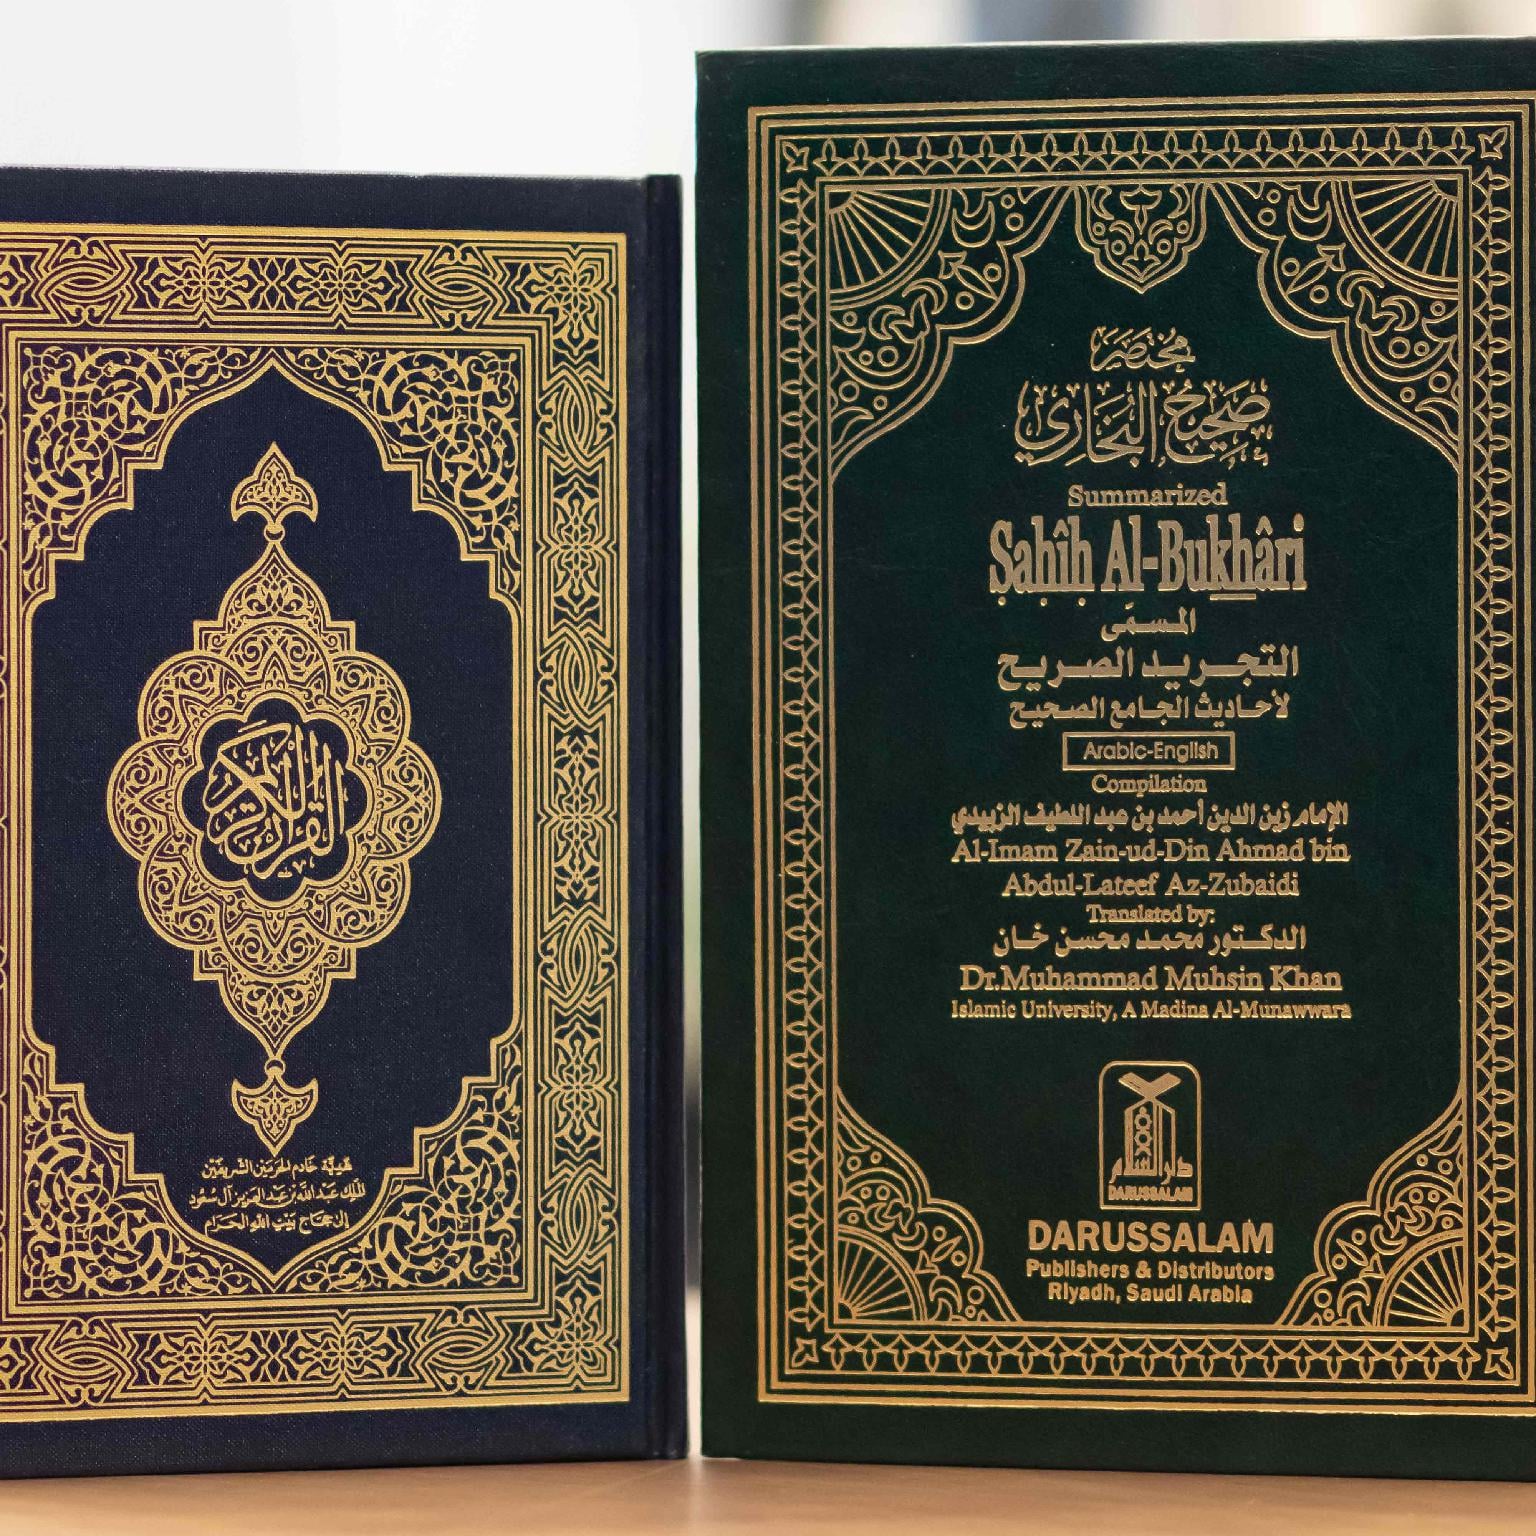 القرآن الكريم
هدية خادم الحرمين الشريفين
الملك عبد الله بن عبد العزيز آل سعود
إلى حجاج بيت الله الحرام
مُختصَر
صَحِيحُ البُخَاري
Summarized
Ṣaḥîḥ Al-Bukhâri
المسمّى
التجريد الصريح
لأحاديث الجامع الصحيح
Arabic-English
Compilation
الإمام زين الدين أحمد بن عبد اللطيف الزبيدي
Al-Imam Zain-ud-Din Ahmad bin
Abdul-Lateef Az-Zubaidi
Translated by:
الدكتور محمد محسن خان
Dr.Muhammad Muhsin Khan
Islamic University, A Madina Al-Munawwara
دار السلام
DARUSSALAM
DARUSSALAM
Publishers & Distributors
Riyadh, Saudi Arabia